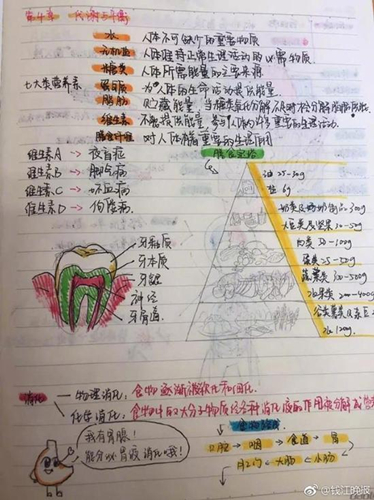 第4章 代谢与平衡
水 人体不可缺少的重要物质
无机盐 人体维持正常生理活动的必需物质
糖类 人体所需能量的主要来源
七大类营养素 蛋白质 为人体的生命活动提供能量
脂肪 贮藏能量,当糖类氧化分解不足时
维生素 不能提供能量,参与人体许多重要的生理活动.
膳食纤维 对人体有重要的生理作用
维生素A → 夜盲症
维生素B → 脚气病
维生素C → 坏血病
维生素D → 佝偻病
膳食宝塔
油 25-30g
盐 6g
奶类及奶制品 300g
大豆类及坚果 30-50g
肉类 50-100g
蛋类 25-50g
蔬菜类 300-500g
水果类 200-400g
谷类薯类及杂豆
水 1200g
牙釉质
牙本质
牙龈
神经
牙骨质
消化
物理消化:食物逐渐液状化和细化
化学消化:食物中的大分子物质经各种消化液的作用被分解成
我有胃腺!
能分泌胃液消化哦!
食物路线
口腔 → 咽 → 食道 → 胃
肛门 ← 大肠 ← 小肠
@钱江晚报